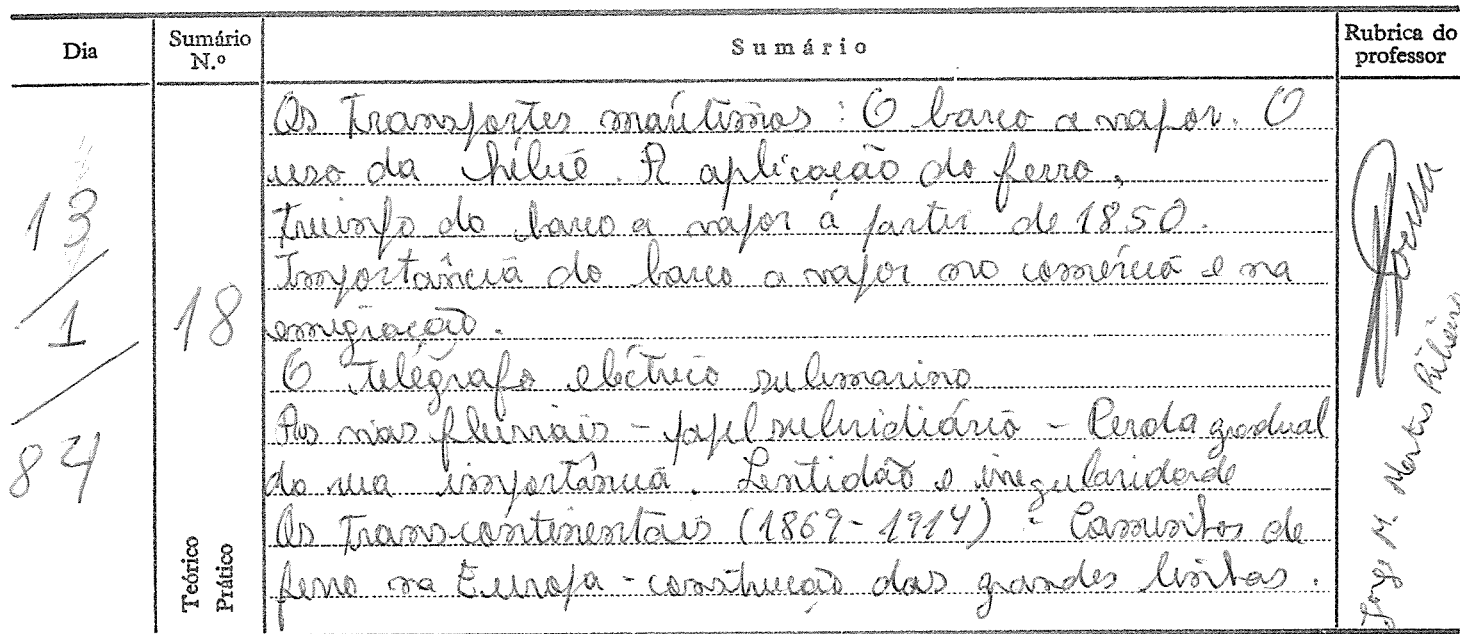 Dia
Sumário N.º
Sumário
Rubrica do professor
13/1/84
18
Teórico
Prático
Os Transportes marítimos: O barco a vapor. O
uso da hélice. A aplicação do ferro,
triunfo do barco a vapor a partir de 1850.
Importância do barco a vapor no comércio e na
emigração.
O Telégrafo eléctrico submarino
As vias fluviais - papel subsidiário - Perda gradual
da sua importância. Lentidão e irregularidade
Os Transcontinentais (1869-1914) - Caminhos de
ferro na Europa - construção das grandes linhas.
Jorge M. Martins Ribeiro